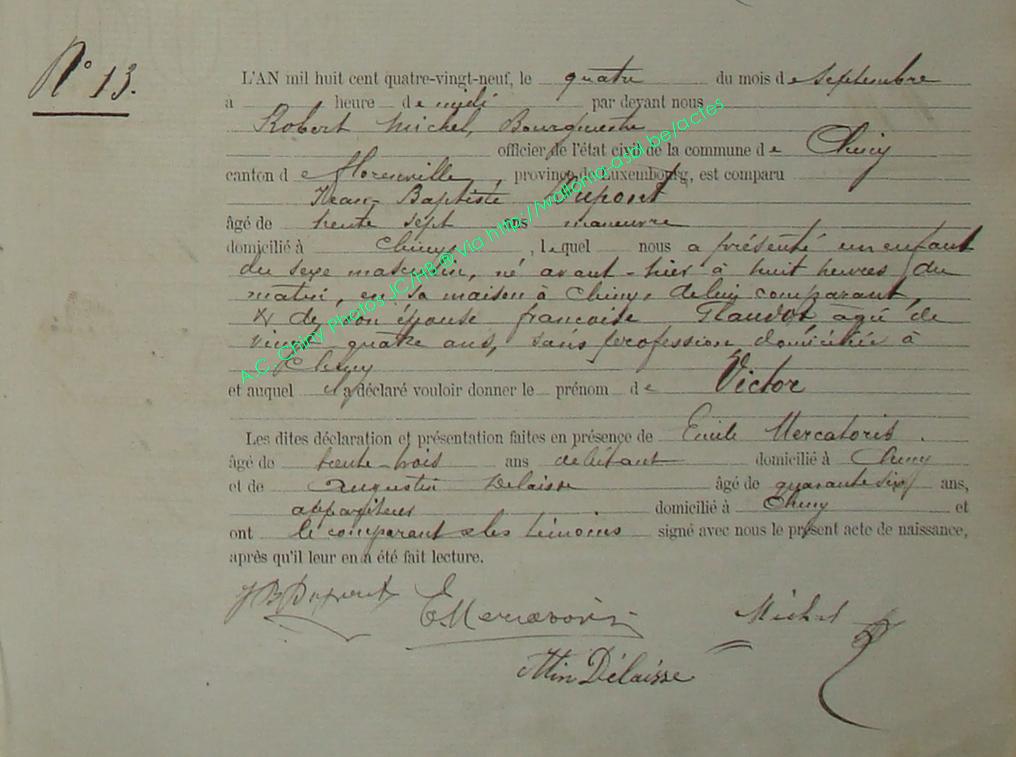 N° 13.
L'AN mil huit cent quatre-vingt-neuf, le quatre du mois de septembre
a heure de midi par devant nous
Robert Michel, Bourgmestre
officier de l'état civil de la commune de Chiny
canton de Florenville, province de Luxembourg, est comparu
Jean-Baptiste Dupont
âgé de trente sept ans manœuvre
domicilié à Chiny, lequel nous a présenté un enfant
du sexe masculin, né avant-hier à huit heures du
matin, en sa maison à Chiny, de lui comparant,
& de son épouse françoise Glaudot agée de
vingt quatre ans, sans profession domiciliée à
Chiny
et auquel il a déclaré vouloir donner le prénom de Victor
Les dites déclaration et présentation faites en présence de Emile Mercatoris
âgé de trente-trois ans débitant domicilié à Chiny
et de Augustin Delaisse âgé de quarante six ans,
appariteur domicilié à Chiny et
ont le comparant & les témoins signé avec nous le présent acte de naissance,
après qu'il leur en a été fait lecture.
JB Dupont EMercatoris Michel
Attin Délaisse
A.C. Chiny Photos JC/HB ® Via http://wallonia.asbl.be/actes